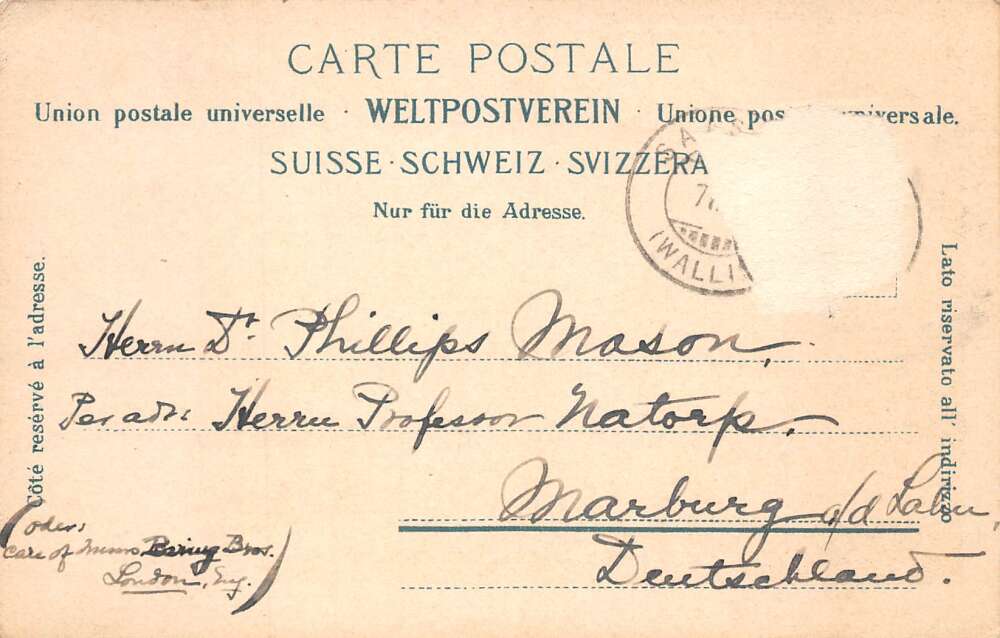 CARTE POSTALE
Union postale universelle · WELTPOSTVEREIN · Unione pos universale.
SUISSE · SCHWEIZ · SVIZZERA
Nur für die Adresse.
SAA
7
(WALLI
Côté resérvé à l'adresse.
Lato riservato all' indirizzo
Herrn Dr. Phillips Mason,
Per adr: Herrn Professor Natorp.
Marburg a/d Lahn,
Deutschland.
(oder:
care of Baring Bros.
London, Eng.)